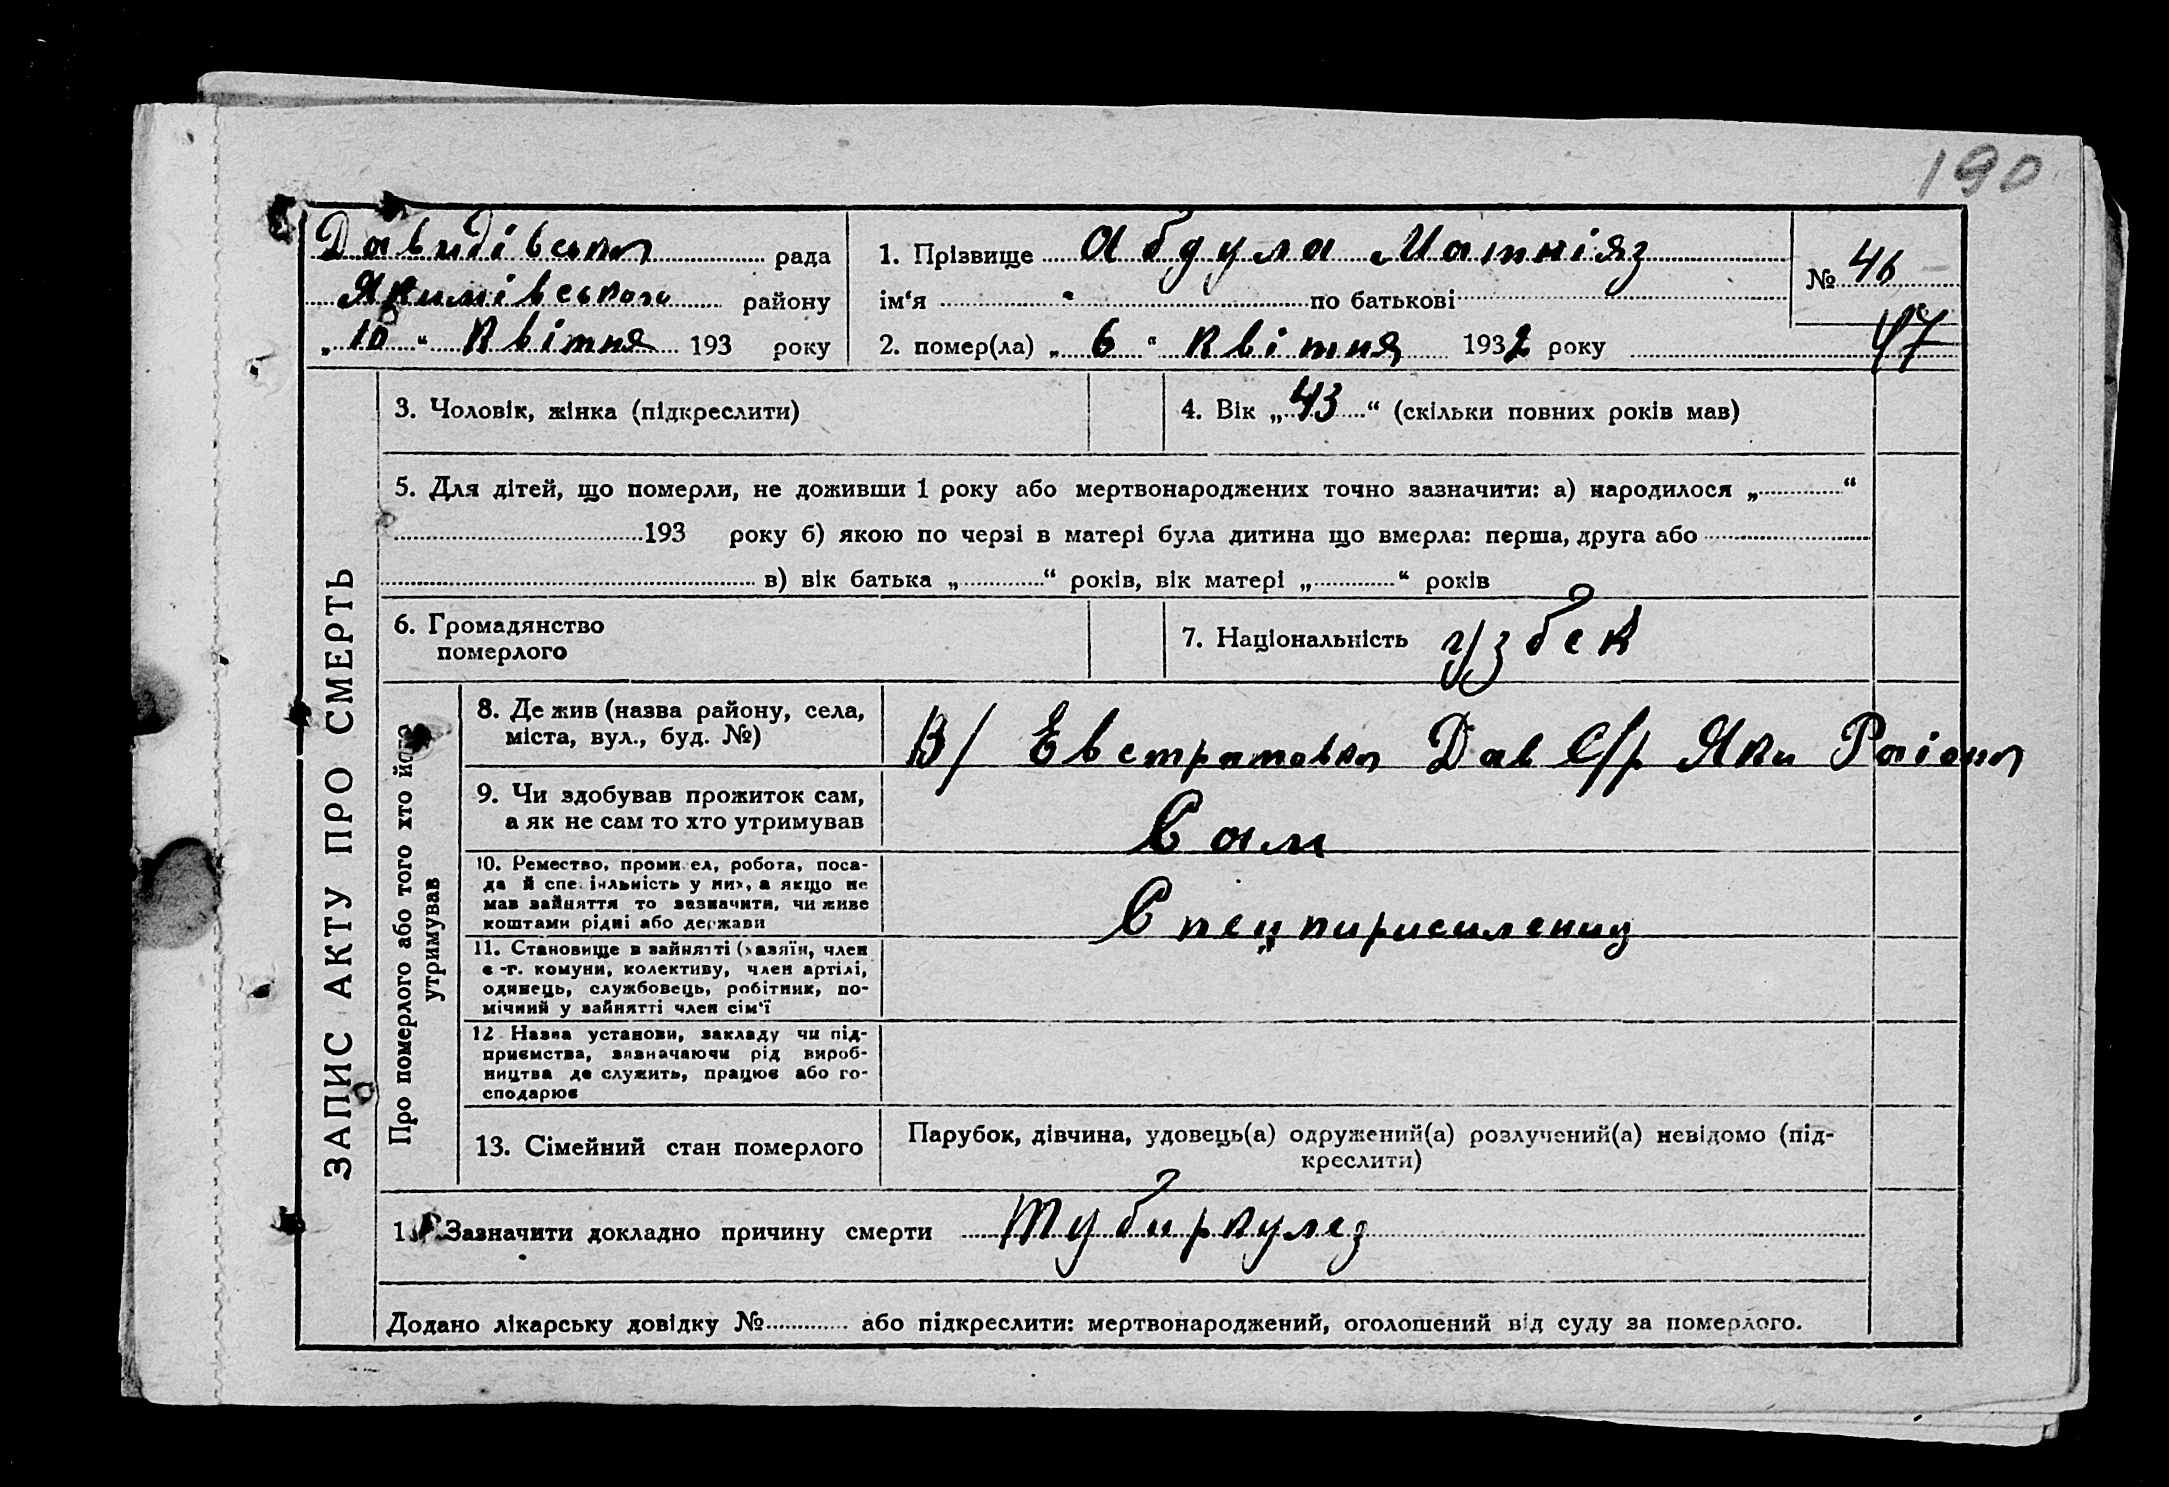 190
Давидівська рада
Якимівського району
„ 10 “ Квітня 193 року
1. Прізвище Абдула Матніяз
ім‘я по батькові
2. помер(ла) „ 6 “ Квітня 1932 року
№ 46
47
ЗАПИС АКТУ ПРО СМЕРТЬ
3. Чоловік, жінка (підкреслити)
4. Вік „ 43 “ (скільки повних років мав)
5. Для дітей, що померли, не доживши 1 року або мертвонароджених точно зазначити: а) народилося „ “
193 року б) якою по черзі в матері була дитина що вмерла: перша, друга або
в) вік батька „ “ років, вік матері „ “ років
6. Громадянство
померлого
7. Національність узбек
Про померлого або того хто його
утримував
8. Де жив (назва району, села,
міста, вул., буд. №)
В/ Евстратовка Дав С/р Яки Раіона
9. Чи здобував прожиток сам,
а як не сам то хто утримував
Сам
10. Ремество, промисел, робота, поса-
да й спеціяльність у них, а якщо не
мав зайняття то зазначити, чи живе
коштами рідні або держави
Спецпирисилениц
11. Становище в зайнятті (хазяїн, член
с.-г. комуни, колективу, член артілі,
одинець, службовець, робітник, по-
мічний у зайнятті член сім‘ї
12 Назва установи, закладу чи під-
приємства, зазначаючи рід вироб-
ництва де служить, працює або го-
сподарює
13. Сімейний стан померлого
Парубок, дівчина, удовець(а) одружений(а) розлучений(а) невідомо (під-
креслити)
14. Зазначити докладно причину смерти Тубиркулез
Додано лікарську довідку № або підкреслити: мертвонароджений, оголошений від суду за померлого.